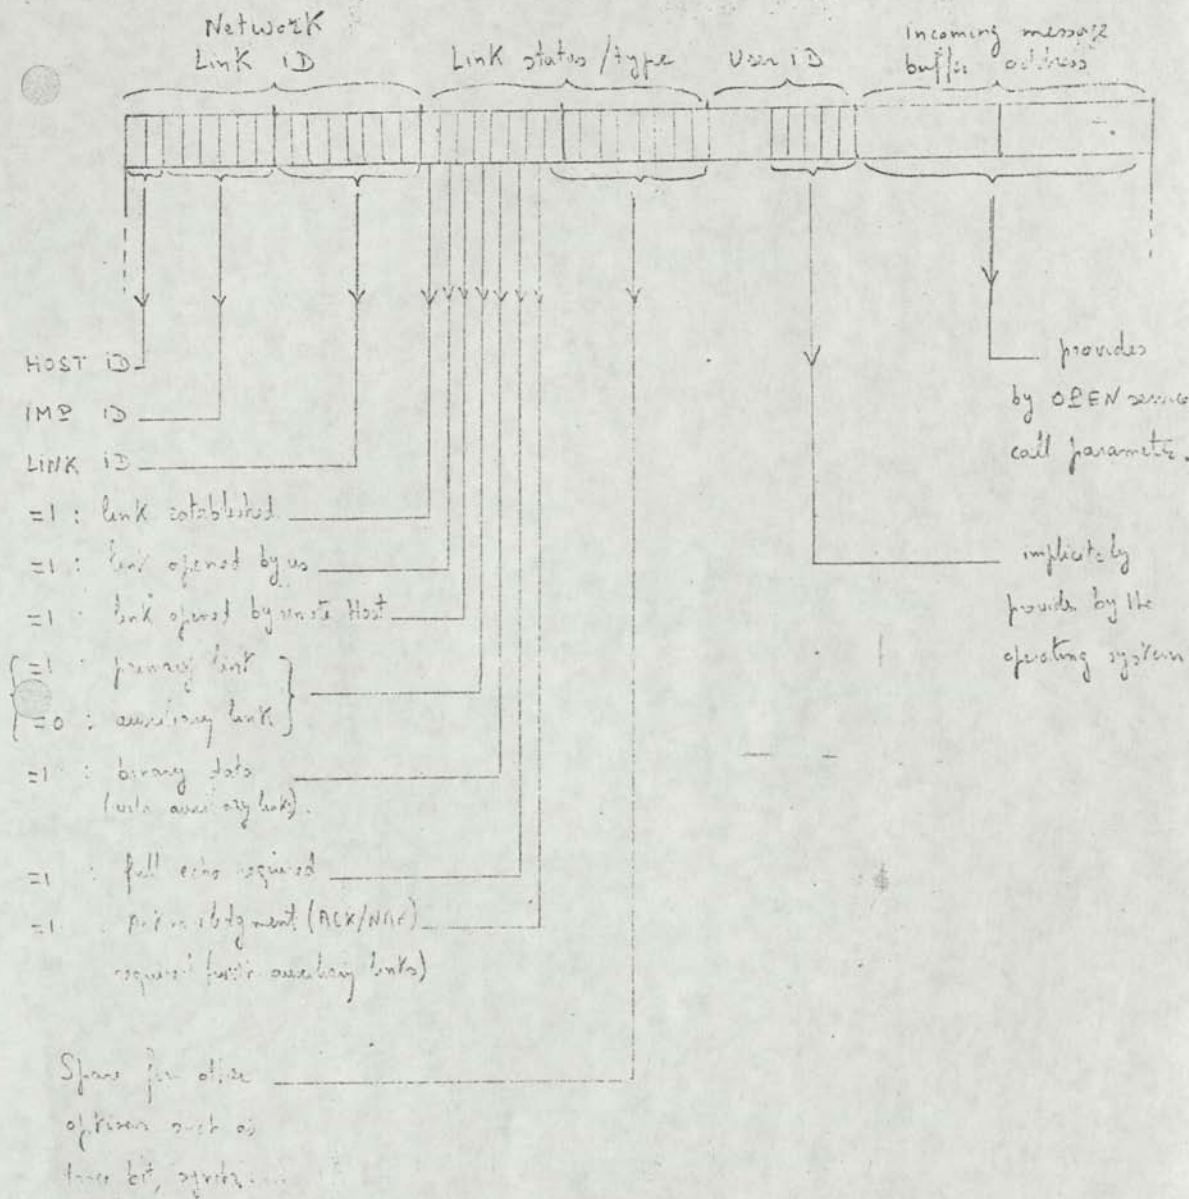 Network
Link iD
Link status / type
User iD
incoming message
buffer address
HOST iD
IMP iD
LiNK iD
=1 : link established
=1 : link opened by us
=1 : link opened by remote Host
=1 : primary link
=0 : auxiliary link
=1 : binary data
(with auxiliary links).
=1 : full echo required
=1 : (ACK/NAK)
required auxiliary links)
Spare for other
such as
bit,
provides
by OPEN service
call parameter.
implicitely
provides by the
operating system